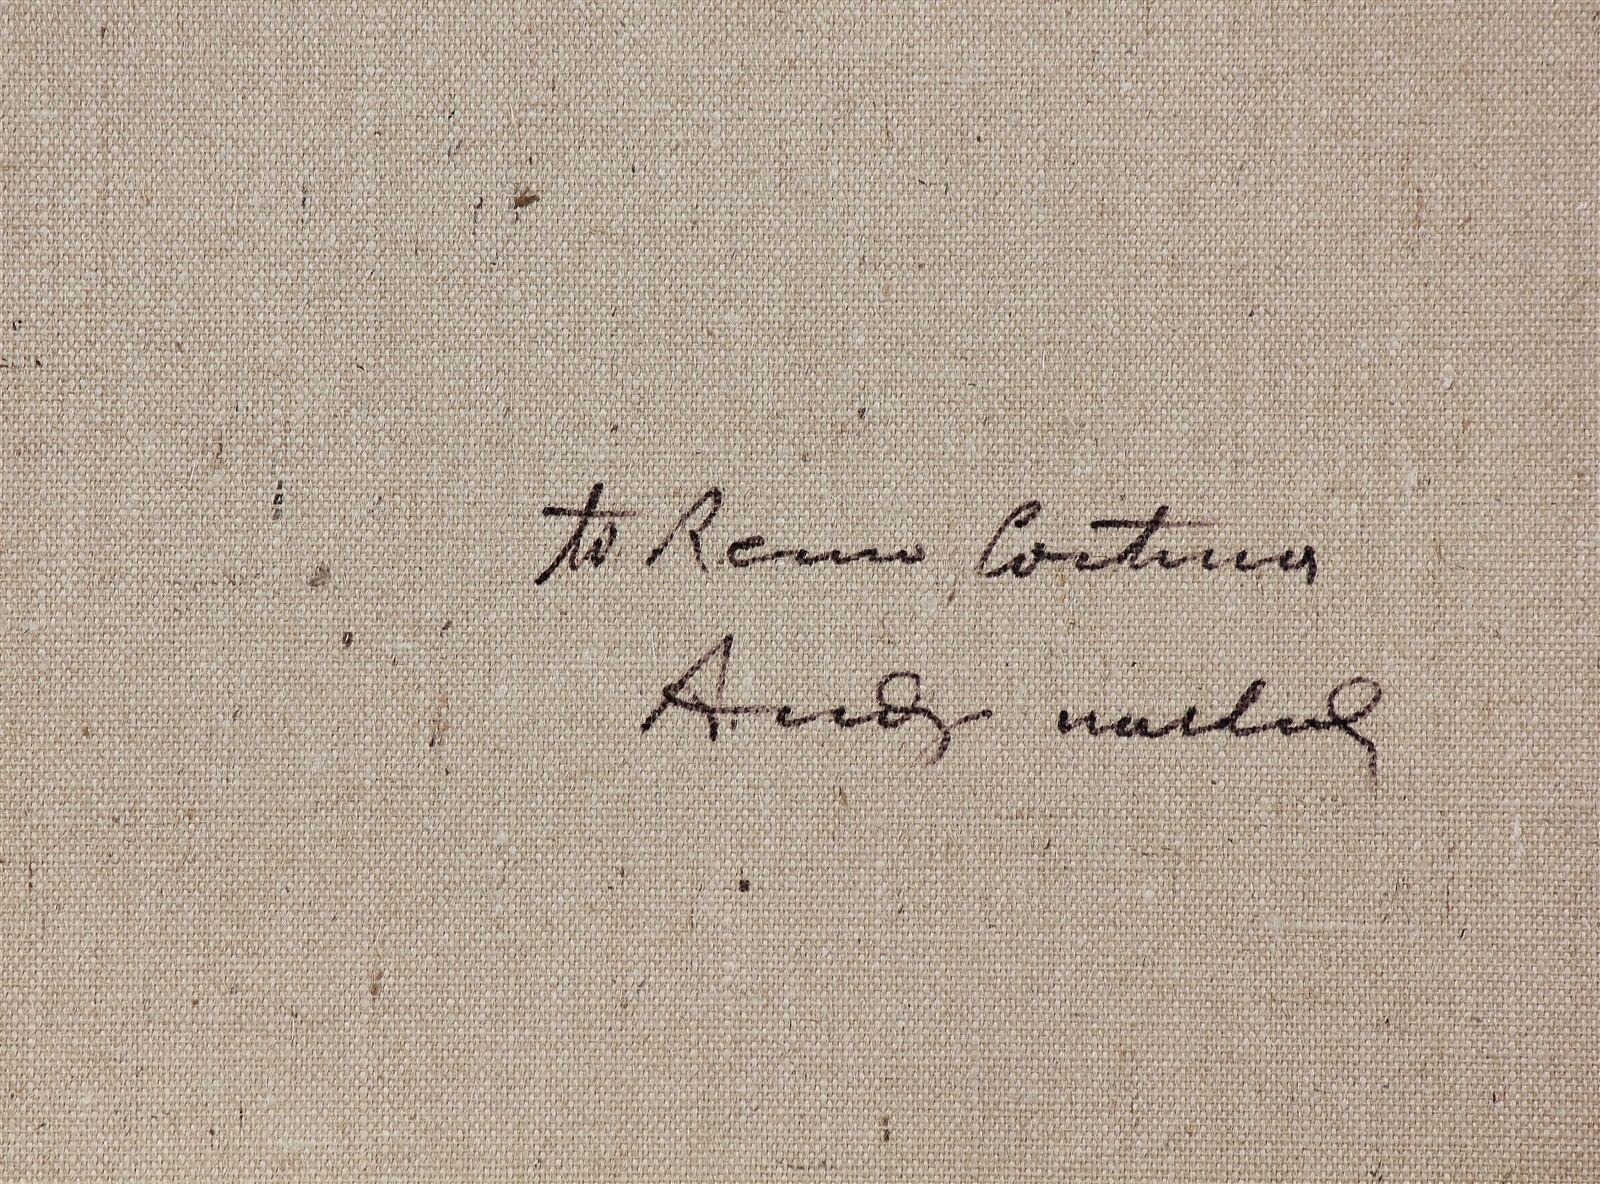 to Remo Cortina
Andy warhol